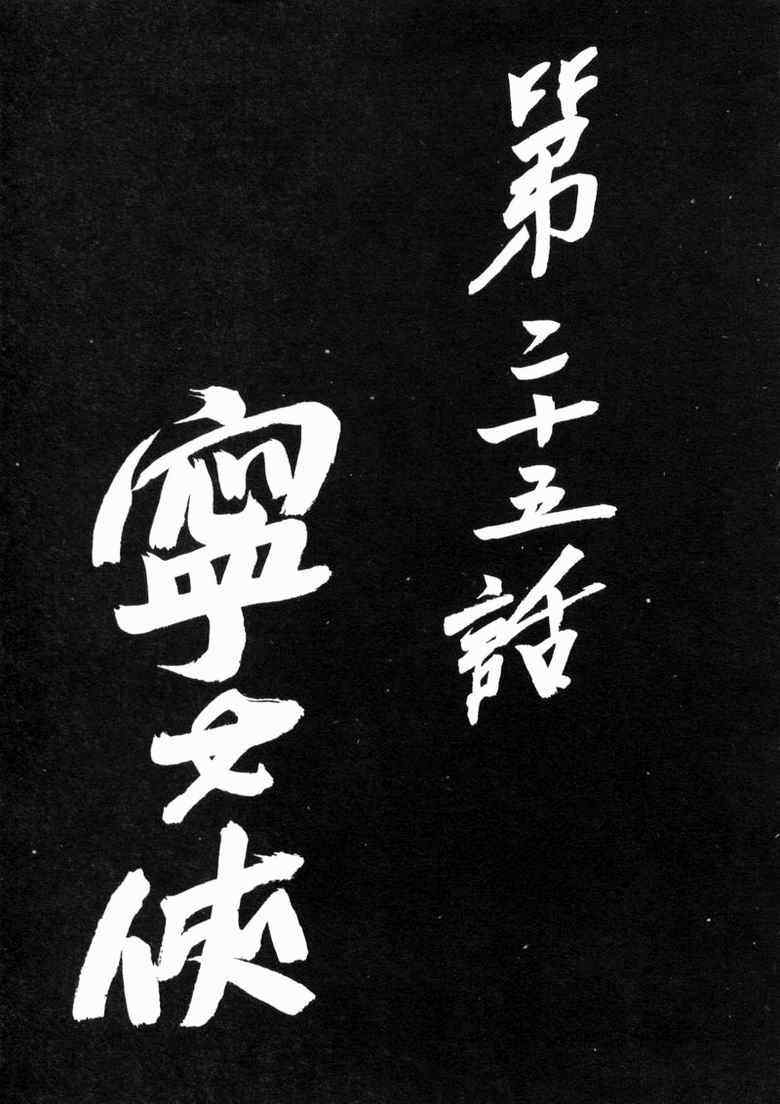 第二十五話
寧女俠